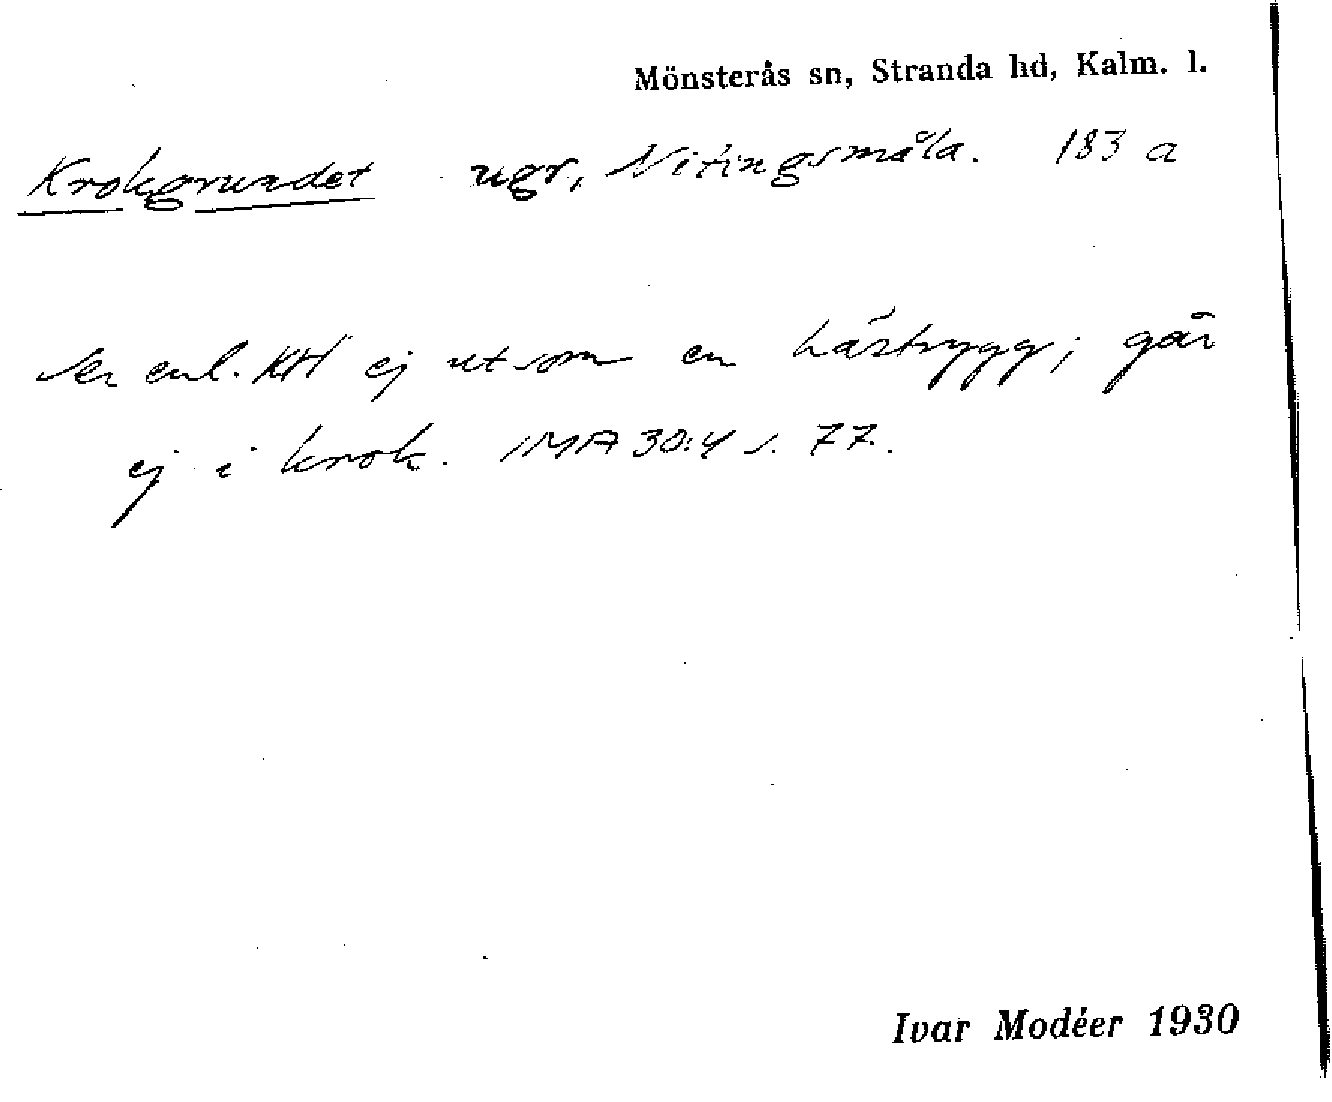 Mönsterås sn, Stranda hd, Kalm. l.
Krokgrundet ugr, Nötingsmåla. 183 a
Ser enl. KH ej ut som en hästrygg; går
ej i krok. IMA 30:4 s. 77.
Ivar Modéer 1930